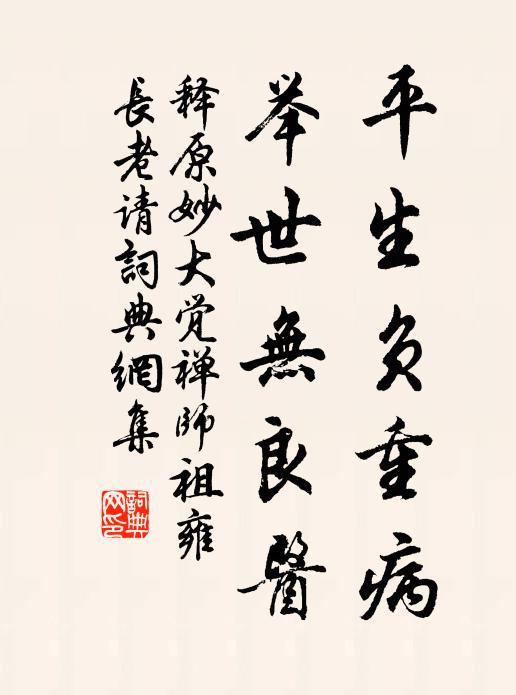 平生负重病
举世無良醫
释原妙大觉禅师祖雍
長老请詞典網集
詞典
网印